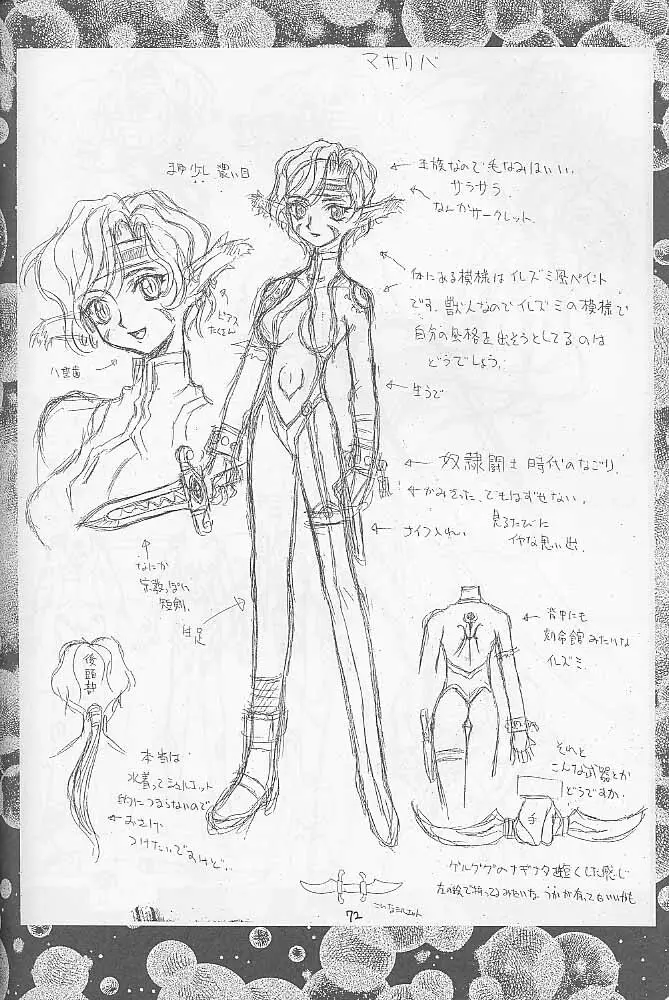 マサリバ
まゆ少し濃い目
← 王族なので毛なみはいい。
サラサラ
なんかサークレット
ピアス
たくさん
八重歯
体にある模様はイレズミ風ペイント
です。獣人なのでイレズミの模様で
自分の品格を出そうとしてるのは
どうでしょう。
← 生うで
← 奴隷闘士時代のなごり。
でもはずせない。
見るたびに
イヤな思い出
← ナイフ入れ
なにか
宗教っぽい
短剣
生足
後頭部
← 背中にも
刻命館みたいな
イレズミ
本当は
水着ってシルエット
的につまらないので
← おさげ
つけたいですけど…
そのと
こんな武器とか
どうですか
手
ゲルググのナギナタ短くした感じ
こんなシルエット
72